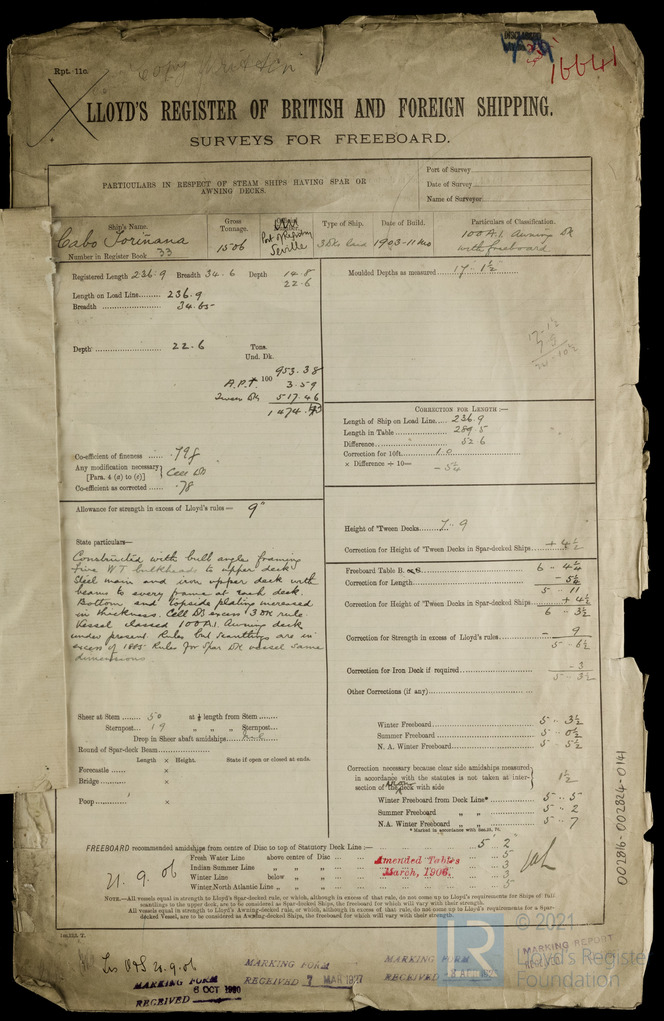 Rpt. 11c.
16641
LLOYD'S REGISTER OF BRITISH AND FOREIGN SHIPPING.
SURVEYS FOR FREEBOARD.
PARTICULARS IN RESPECT OF STEAM SHIPS HAVING SPAR OR
AWNING DECKS.
Port of Survey
Date of Survey
Name of Surveyor
Ship's Name.
Gross
Tonnage.
Port of Registry
Type of Ship.
Date of Build.
Particulars of Classification.
Cabo Toriñana
1506
Seville
3 Dks
1903-11 mo
100 A.1. Awning Dk
with freeboard
Number in Register Book 33
Registered Length 236.9 Breadth 34.6 Depth 14.8
22.6
Length on Load Line 236.9
Breadth 34.65
Depth 22.6
Tons.
Und. Dk.
953.38
A.P.T. 100 3.59
Tween Dk 517.46
1474.43
Co-efficient of fineness .798
Any modification necessary
[Para. 4 (a) to (e)]
Cell DB
Co-efficient as corrected .78
Moulded Depths as measured 17. 1½
CORRECTION FOR LENGTH:—
Length of Ship on Load Line 236.9
Length in Table 289.5
Difference 52.6
Correction for 10ft. 1.0
× Difference ÷ 10= - 5¼
Allowance for strength in excess of Lloyd's rules— 9"
State particulars—
Constructed with bulb angle framing
five WT bulkheads to upper deck
Steel main and iron upper deck with
beams to every frame at each deck.
Bottom and topside plating increased
in thickness. Cell DB excess 3 Dk rule
Vessel classed 100 A.1. Awning deck
under present Rules but scantlings are in
excess of 1885 Rules for Spar Dk vessel same
dimensions
Height of 'Tween Decks 7. 9
Correction for Height of 'Tween Decks in Spar-decked Ships + 4½
Freeboard Table B. or C. 6 - 4¼
Correction for Length - 5¼
5 - 11
Correction for Height of 'Tween Decks in Spar-decked Ships + 4½
6 - 3½
Correction for Strength in excess of Lloyd's rules - 9
5 - 6½
Correction for Iron Deck if required - 3
5 - 3½
Other Corrections (if any)
Sheer at Stem 50 at ⅛ length from Stem
Sternpost 19 " " " Sternpost
Drop in Sheer abaft amidships
Round of Spar-deck Beam
Length × Height. State if open or closed at ends.
Forecastle ×
Bridge ×
Poop ×
Winter Freeboard 5 - 3½
Summer Freeboard 5 - 0½
N. A. Winter Freeboard 5 - 5½
Correction necessary because clear side amidships measured
in accordance with the statutes is not taken at inter-
section of the deck with side
1½
Winter Freeboard from Deck Line* 5 - 5
Summer Freeboard " " 5 - 2
N.A. Winter Freeboard " " 5 - 7
FREEBOARD recommended amidships from centre of Disc to top of Statutory Deck Line :— 5 2
Fresh Water Line above centre of Disc 5
Indian Summer Line " " 3
Winter Line below " " 3
Winter North Atlantic Line " " 5
21. 9. 06
Amended Tables
March, 1906.
NOTE.—All vessels equal in strength to Lloyd's Spar-decked rule, or which, although in excess of that rule, do not come up to Lloyd's requirements for Ships of full
scantlings to the upper deck, are to be considered as Spar-decked Ships, the freeboard for which will vary with their strength.
All vessels equal in strength to Lloyd's Awning-decked rule, or which, although in excess of that rule, do not come up to Lloyd's requirements for a Spar-
decked Vessel, are to be considered as Awning-decked Ships, the freeboard for which will vary with their strength.
21.9.06
MARKING FORM
RECEIVED
6 OCT
MARKING FORM
RECEIVED 7 MAR 1927
MARKING FORM
RECEIVED
MARKING REPORT
002816-002824-0141
LR
© 2021
Lloyd's Register
Foundation